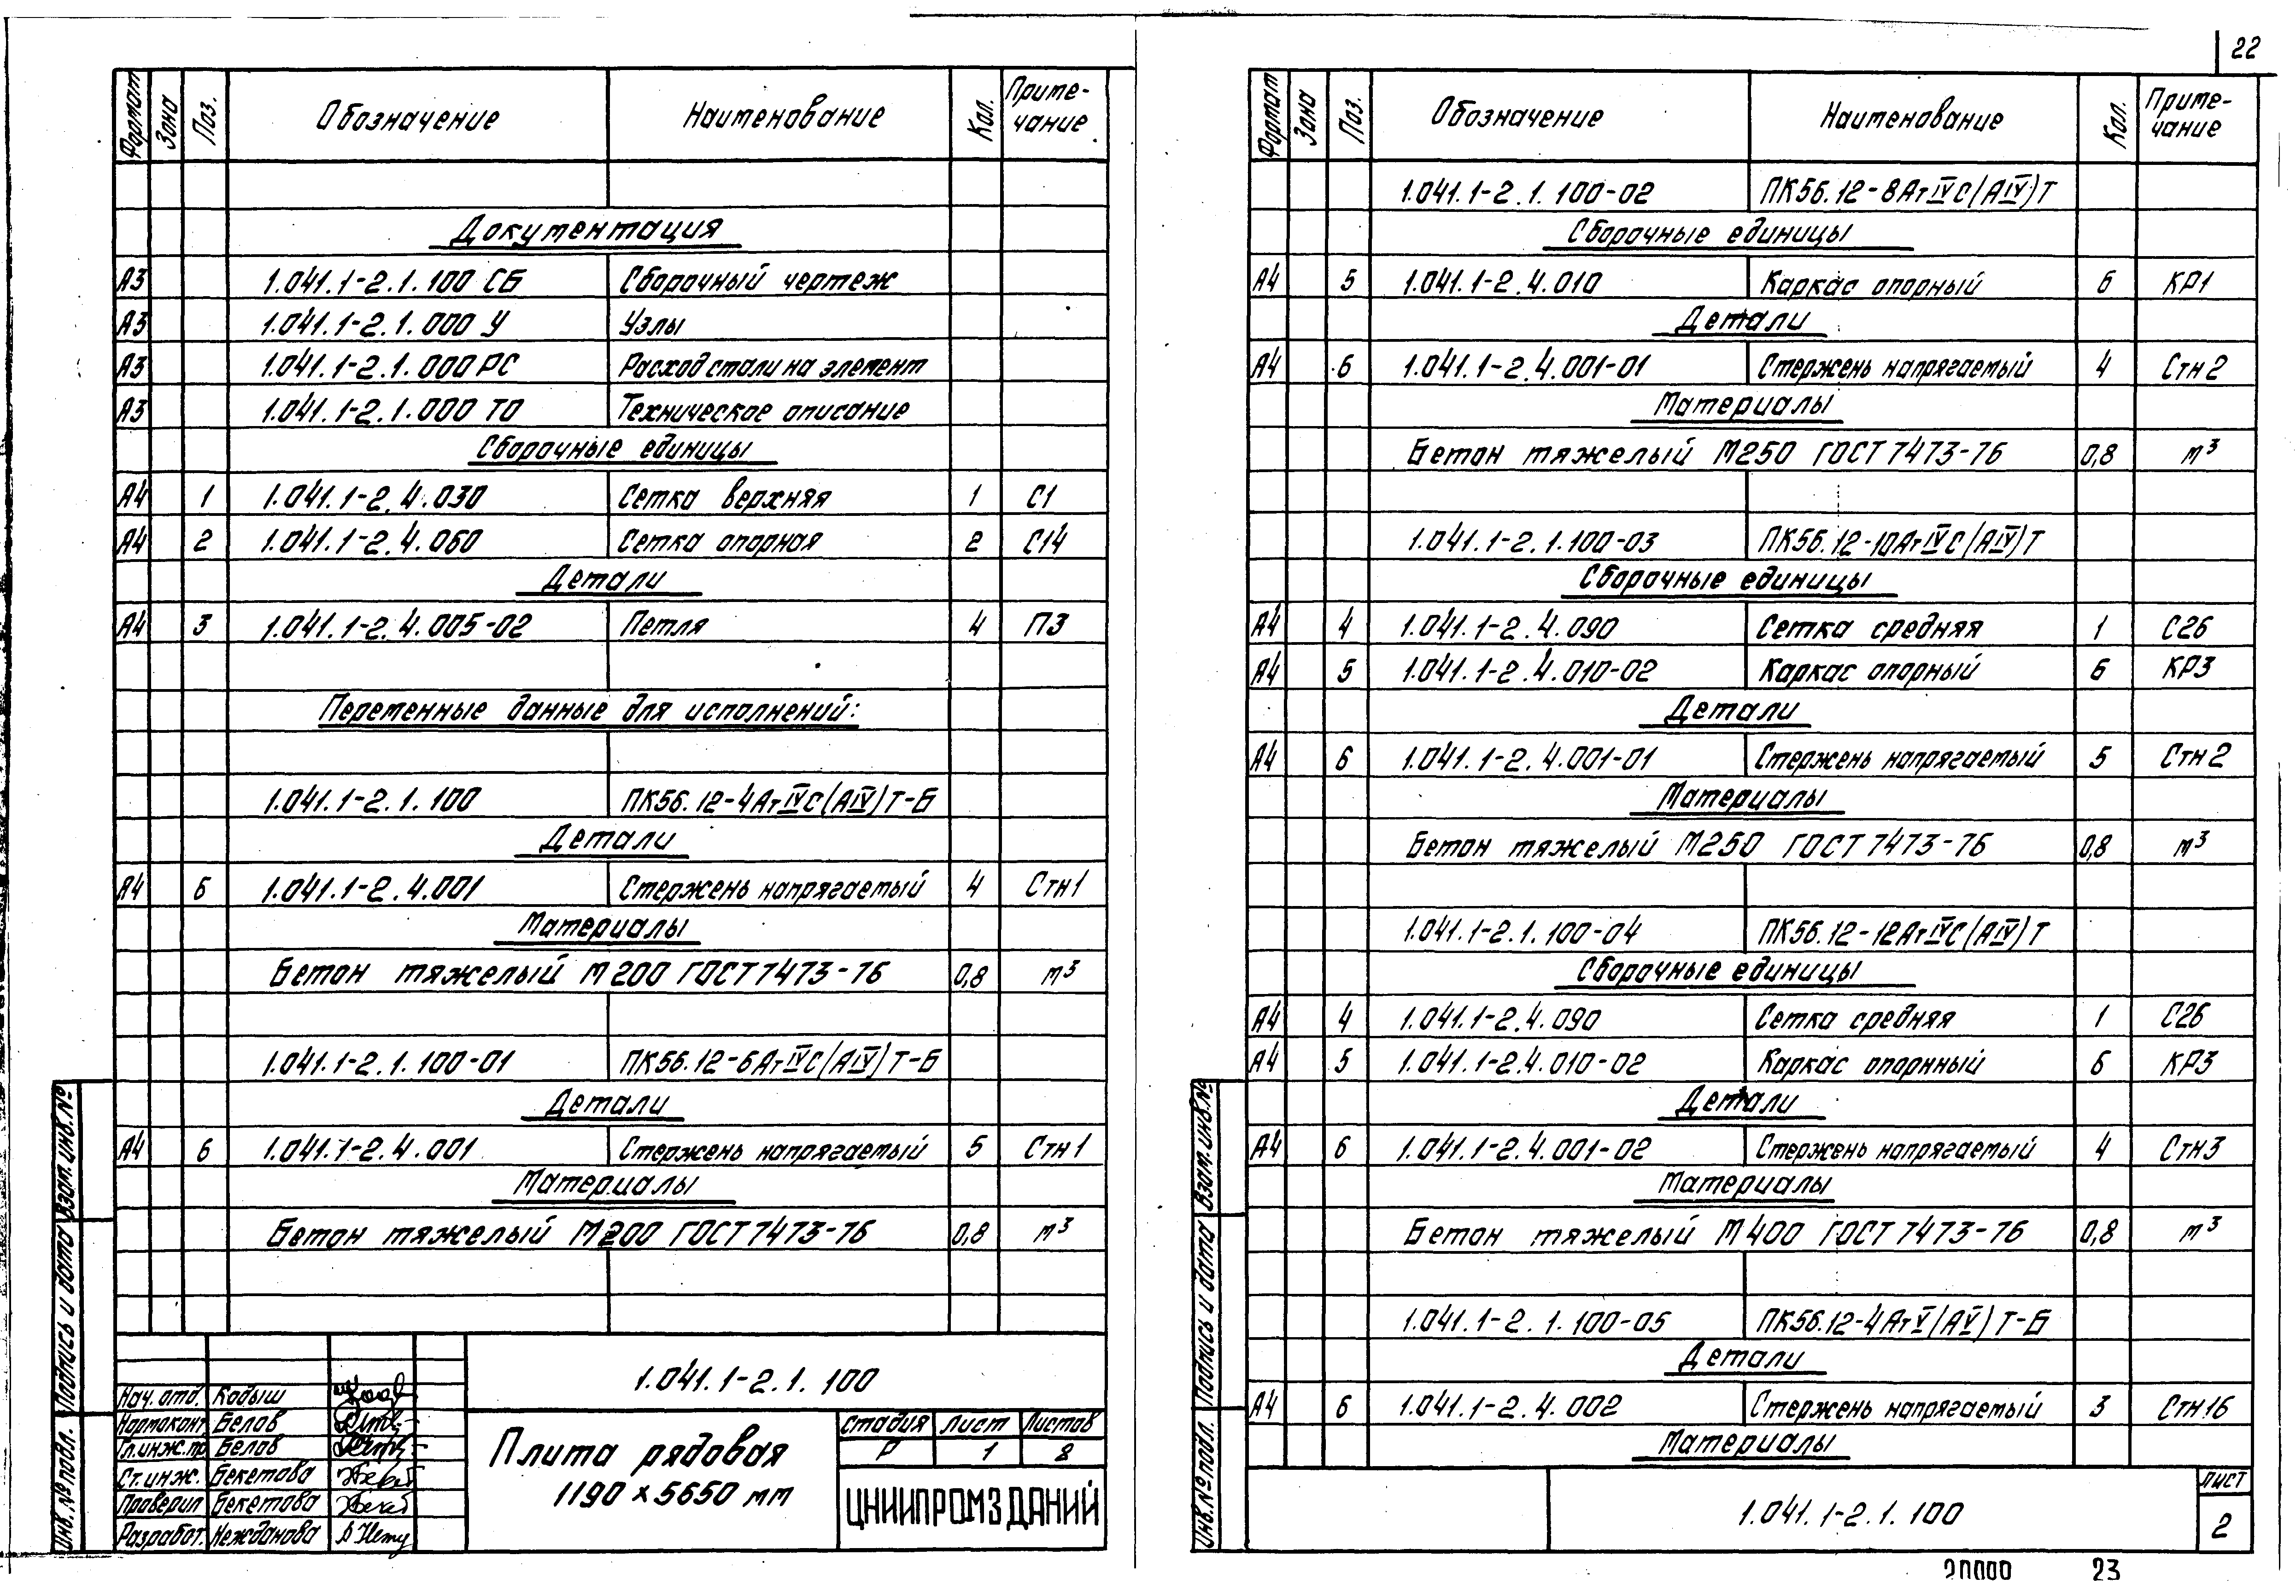 22
Формат Зона Поз. Обозначение Наименование Кол. Приме-
чание
Документация
А3 1.041.1-2.1.100 СБ Сборочный чертеж
А3 1.041.1-2.1.000 У Узлы
А3 1.041.1-2.1.000 РС Расход стали на элемент
А3 1.041.1-2.1.000 ТО Техническое описание
Сборочные единицы
А4 1 1.041.1-2.4.030 Сетка верхняя 1 С1
А4 2 1.041.1-2.4.060 Сетка опорная 2 С14
Детали
А4 3 1.041.1-2.4.005-02 Петля 4 П3
Переменные данные для исполнений:
1.041.1-2.1.100 ПК56.12-4АтIVС(АIV)Т-Б
Детали
А4 6 1.041.1-2.4.001 Стержень напрягаемый 4 Стн1
Материалы
Бетон тяжелый М200 ГОСТ 7473-76 0,8 м³
1.041.1-2.1.100-01 ПК56.12-6АтIVС(АIV)Т-Б
Детали
А4 6 1.041.1-2.4.001 Стержень напрягаемый 5 Стн1
Материалы
Бетон тяжелый М200 ГОСТ 7473-76 0,8 м³
Инв.№подл. Подпись и дата Взам.инв.№
1.041.1-2.1.100
Нач. отд. Кодыш
Нормоконт Белов
Гл.инж.пр Белов
Ст.инж. Бекетова
Проверил Бекетова
Разработ. Нежданова
Плита рядовая
1190 x 5650 мм
Стадия Лист Листов
Р 1 8
ЦНИИПРОМЗДАНИЙ
Формат Зона Поз. Обозначение Наименование Кол. Приме-
чание
1.041.1-2.1.100-02 ПК56.12-8АтIVС(АIV)Т
Сборочные единицы
А4 5 1.041.1-2.4.010 Каркас опорный 6 КР1
Детали
А4 6 1.041.1-2.4.001-01 Стержень напрягаемый 4 Стн2
Материалы
Бетон тяжелый М250 ГОСТ 7473-76 0,8 м³
1.041.1-2.1.100-03 ПК56.12-10АтIVС(АIV)Т
Сборочные единицы
А4 4 1.041.1-2.4.090 Сетка средняя 1 С26
А4 5 1.041.1-2.4.010-02 Каркас опорный 6 КР3
Детали
А4 6 1.041.1-2.4.001-01 Стержень напрягаемый 5 Стн2
Материалы
Бетон тяжелый М250 ГОСТ 7473-76 0,8 м³
1.041.1-2.1.100-04 ПК56.12-12АтIVС(АIV)Т
Сборочные единицы
А4 4 1.041.1-2.4.090 Сетка средняя 1 С26
А4 5 1.041.1-2.4.010-02 Каркас опорнный 6 КР3
Детали
А4 6 1.041.1-2.4.001-02 Стержень напрягаемый 4 Стн3
Материалы
Бетон тяжелый М400 ГОСТ 7473-76 0,8 м³
1.041.1-2.1.100-05 ПК56.12-4АтV(АV)Т-Б
Детали
А4 6 1.041.1-2.4.002 Стержень напрягаемый 3 Стн16
Материалы
Инв.№подл. Подпись и дата Взам.инв.№
1.041.1-2.1.100
Лист
2
20000 23